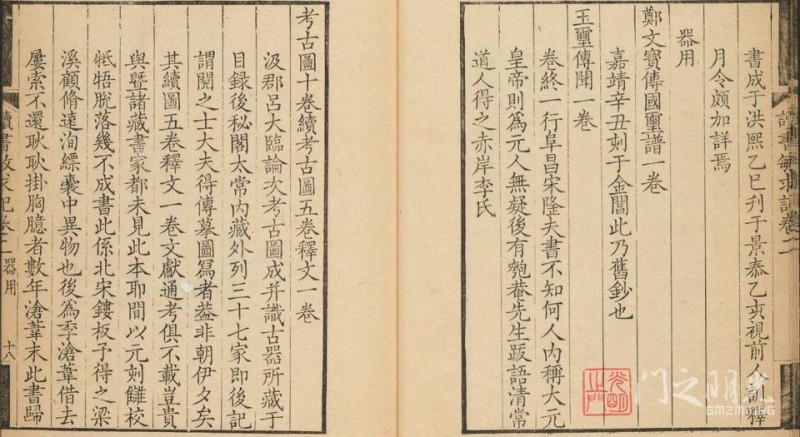 讀書敏求記卷二
書成于洪熙乙巳刋于景泰乙亥視前人訓釋
月令頗加詳焉
器用
鄭文寶傳國璽譜一卷
嘉靖辛丑刻于金閶此乃舊鈔也
玉璽傳聞一卷
卷終一行阜昌宋隆夫書不知何人內稱大元
皇帝則為元人無疑後有匏菴先生跋語清常
道人得之赤岸李氏
考古圖十卷續考古圖五卷釋文一卷
汲郡呂大臨論次考古圖成并識古器所藏于
目録後秘閣太常內藏外列三十七家即後記
謂閱之士大夫得傳摹圖寫者葢非朝伊夕矣
其續圖五卷釋文一卷文獻通考俱不載豈貴
與暨諸藏書家都未見此本耶間以元刻讎校
牴牾脫落幾不成書此係北宋鏤板予得之梁
溪顧脩遠洵縹囊中異物也後為季滄葦借去
屢索不還耿耿掛胸臆者數年滄葦末此書歸
讀書敏求記卷二 器用 十八
门之明光
GMZM.ORG